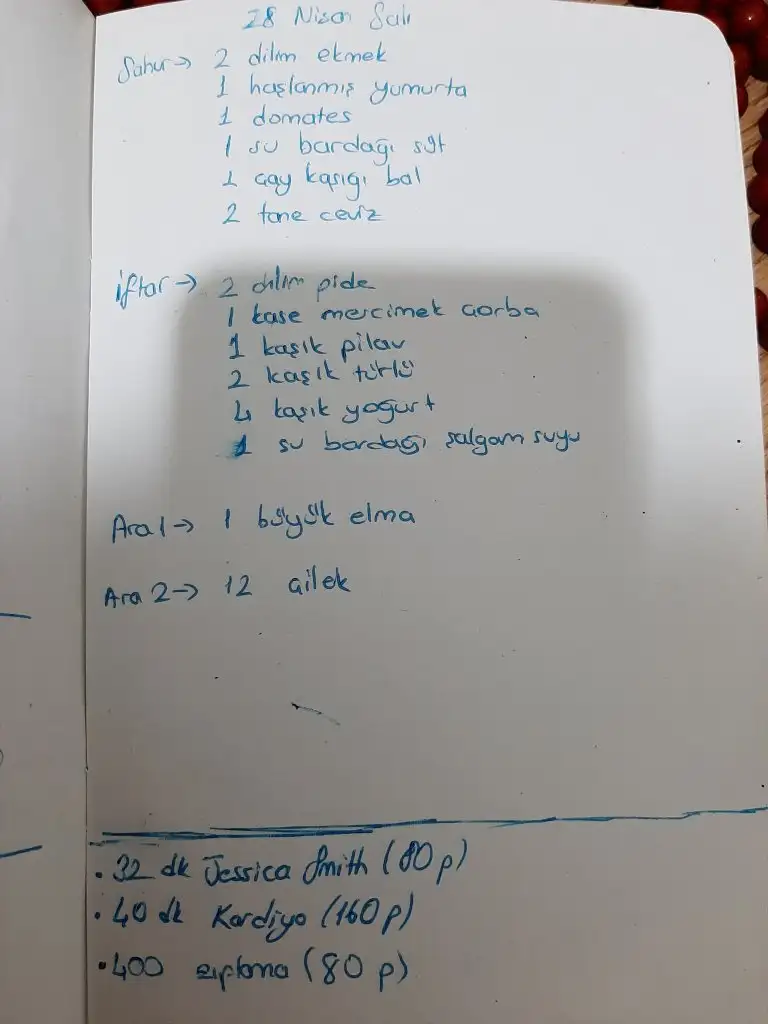 28 Nisan Salı
Sahur→ 2 dilim ekmek
1 haşlanmış yumurta
1 domates
1 su bardağı süt
1 çay kaşığı bal
2 tane ceviz
iftar→ 2 dilim pide
1 kase mercimek çorba
1 kaşık pilav
2 kaşık türlü
4 kaşık yoğurt
1 su bardağı şalgam suyu
Ara 1→ 1 büyük elma
Ara 2→ 12 çilek
• 32 dk Jessica Smith (80 p)
• 40 dk Kardiyo (160 p)
• 400 zıplama (80 p)